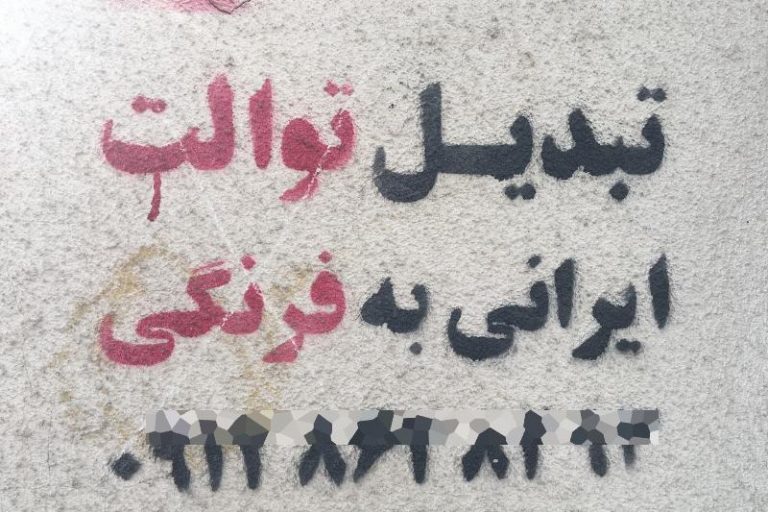 تبدیل توالت
ایرانی به فرنگی